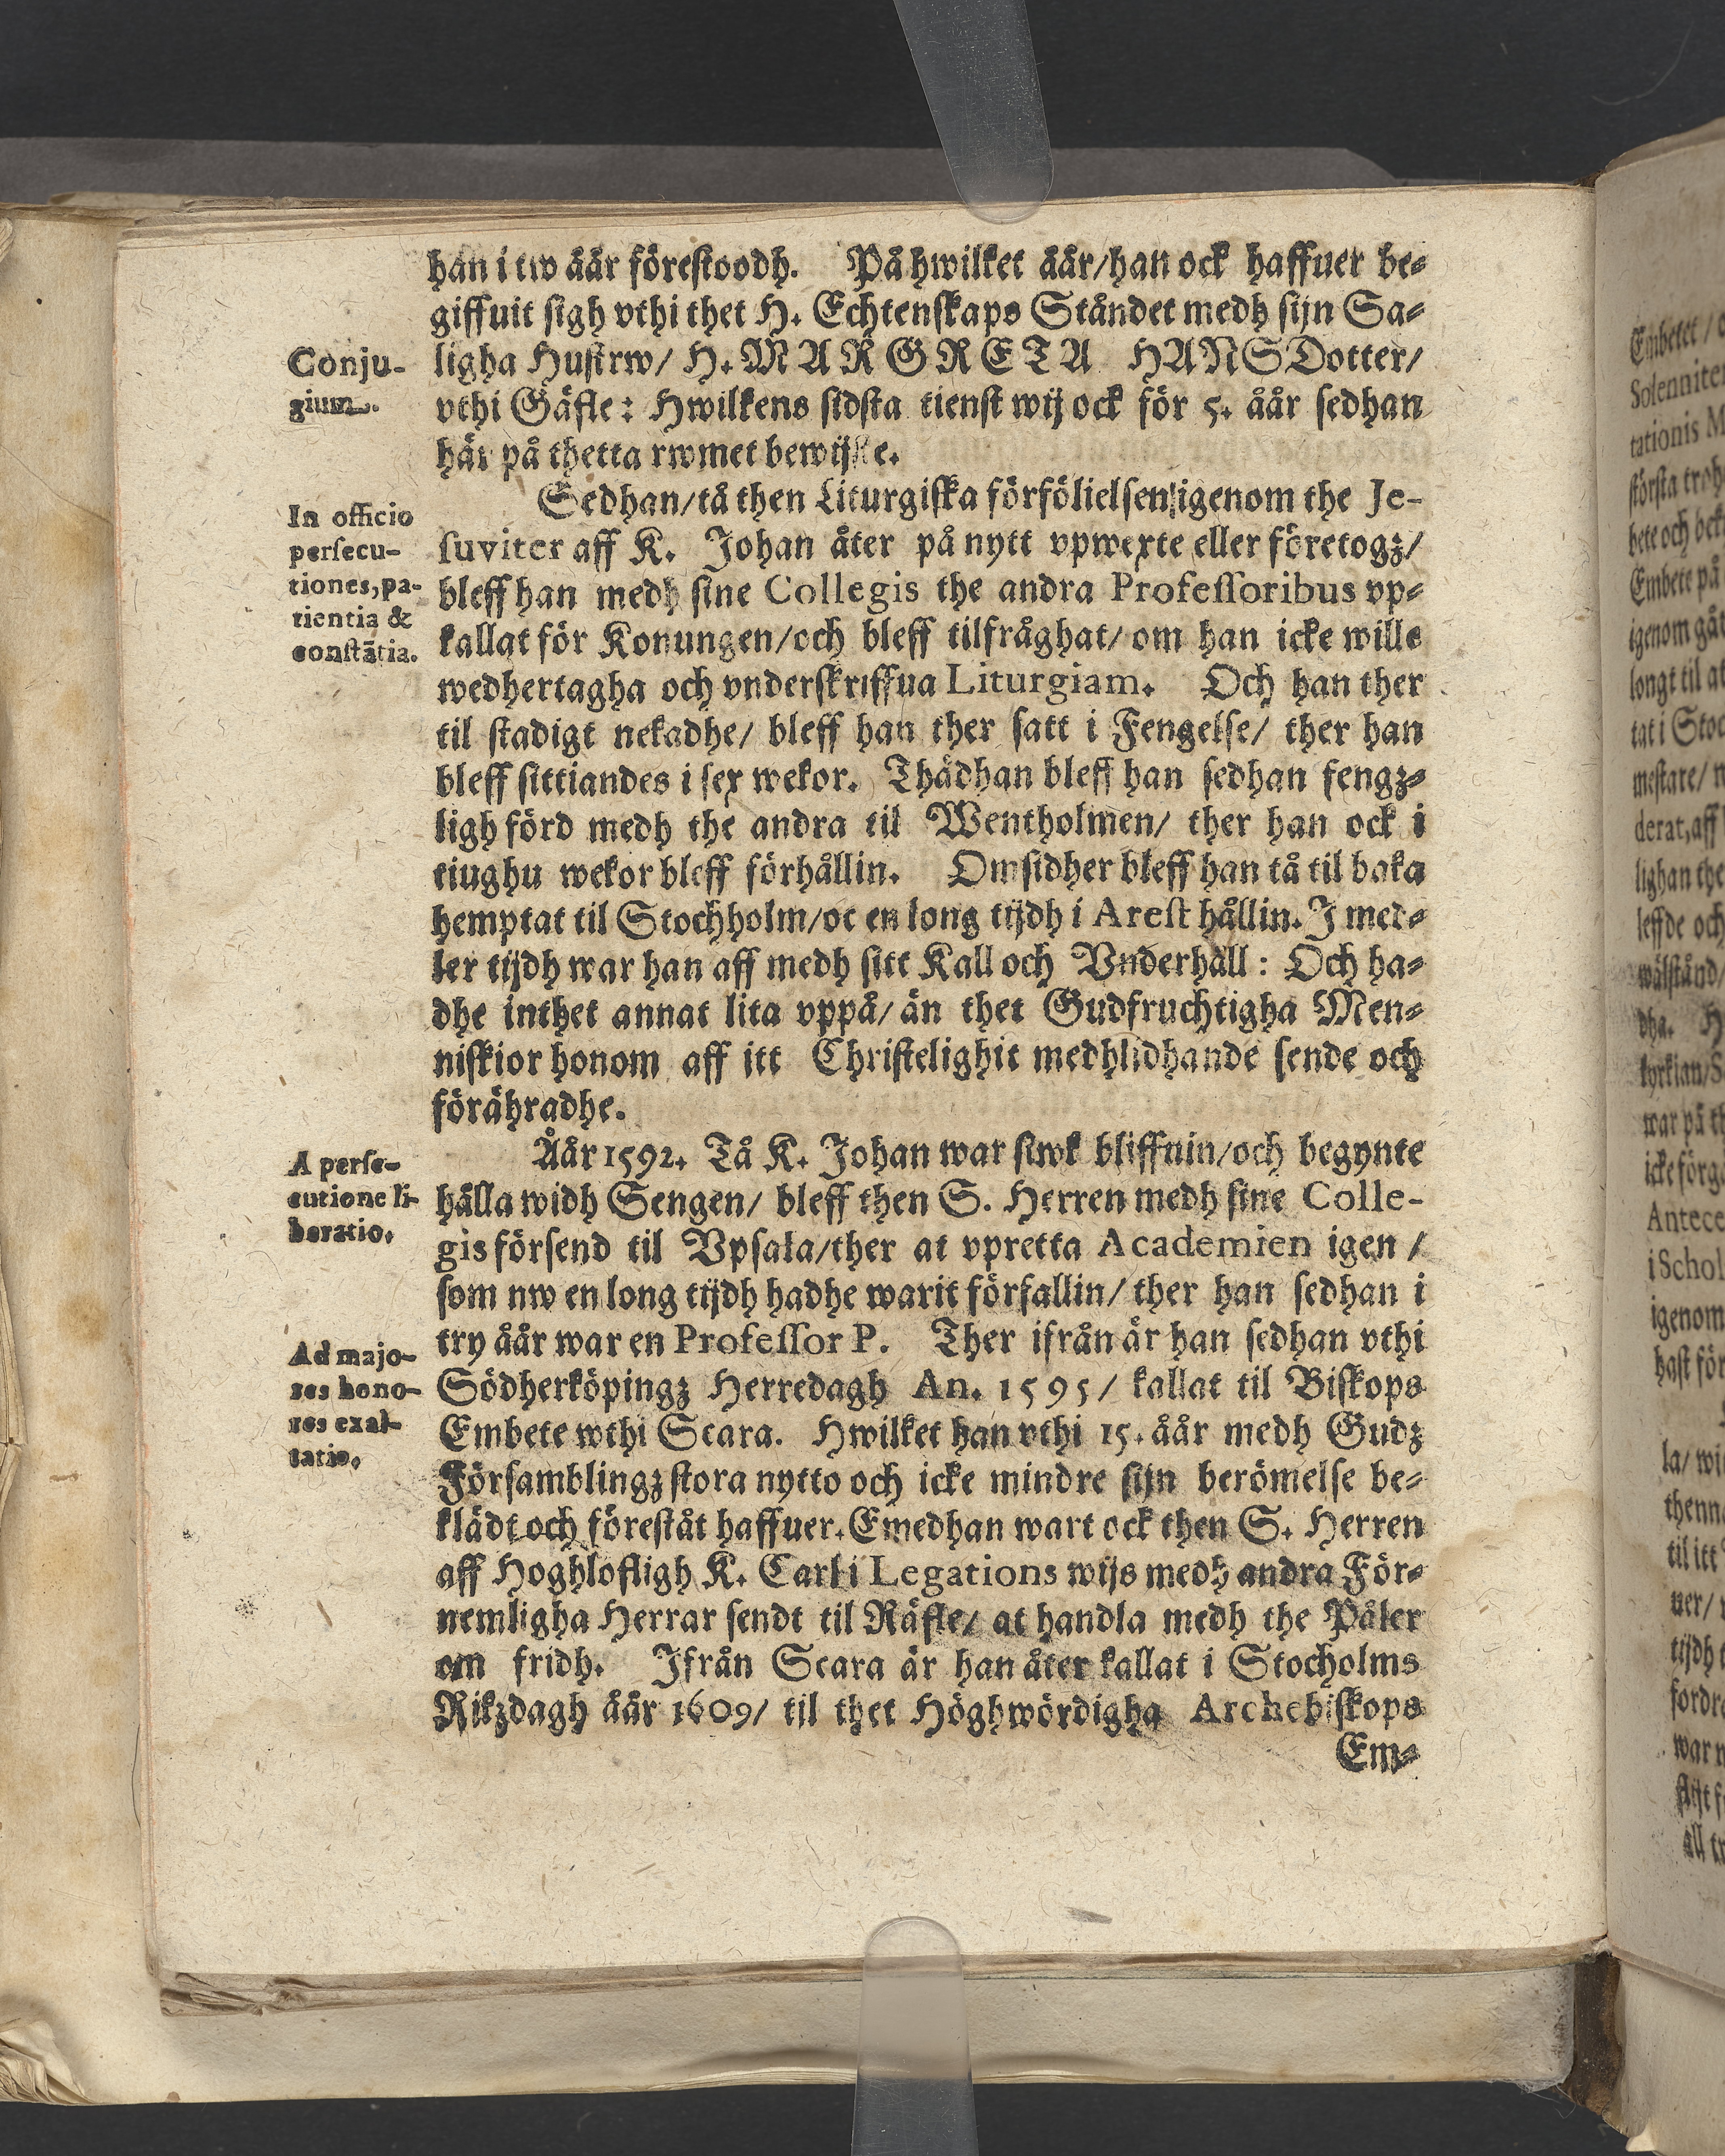 han i tw åår förestoodh. På hwilket åår/han ock haffuer be-
giffuit sigh vthi thet H. Echtenskaps Ståndet medh sijn Sa-
Conju-
gium.
ligha Hustrw/ H. MARGRETA HANSDotter/
vthi Gäfle: Hwilkens sidsta tienst wij ock för 5. åår sedhan
här på thetta rwmet bewijste.
In officio
persecu-
tiones, pa-
tientia &
constātia.
Sedhan/tå then Liturgiska förfölielsen/igenom the Je-
suviter aff K. Johan åter på nytt vpwexte eller företogz/
bleff han medh sine Collegis the andra Professoribus vp-
kallat för Konungen/och bleff tilfråghat/om han icke wille
wedhertagha och vnderskriffua Liturgiam. Och han ther
til stadigt nekadhe/ bleff han ther satt i Fengelse/ ther han
bleff sittiandes i sex wekor. Thädhan bleff han sedhan fengz-
ligh förd medh the andra til Wentholmen/ ther han ock i
tiughu wekor bleff förhållin. Omsidher bleff han tå til baka
hemptat til Stochholm/oc en long tijdh i Arest hållin. I med-
ler tijdh war han aff medh sitt Kall och Vnderhåll: Och ha-
dhe inthet annat lita vppå/ än thet Gudfruchtigha Men-
niskior honom aff itt Christelighit medhlidhande sende och
förährade.
A perse-
cutione li-
beratio.
Åår 1592. Tå K. Johan war siwk bliffuin/och begynte
hålla widh Sengen/ bleff then S. Herren medh sine Colle-
gis försend til Vpsala/ther at vpretta Academien igen /
som nw en long tijdh hadhe warit förfallin/ ther han sedhan i
Ad majo-
res hono-
res exal-
tatio.
try åår war en Professor P. Ther ifrån är han sedhan vthi
Södherköpingz Herredagh An. 1595/ kallat til Biskops
Embete wthi Scara. Hwilket han vthi 15. åår medh Gudz
Församblingz stora nytto och icke mindre sijn berömelse be-
klädt och förestät haffuer. Emedhan wart ock then S. Herren
aff Hoghlofligh K. Carl i Legations wijs medh andra För-
nemligha Herrar sendt til Räfle/ at handla medh the Påler
om fridh. Ifrån Scara är han åter kallat i Stocholms
Rikzdagh åår 1609/ til thet Höghwördigha Archebiskops
Em-